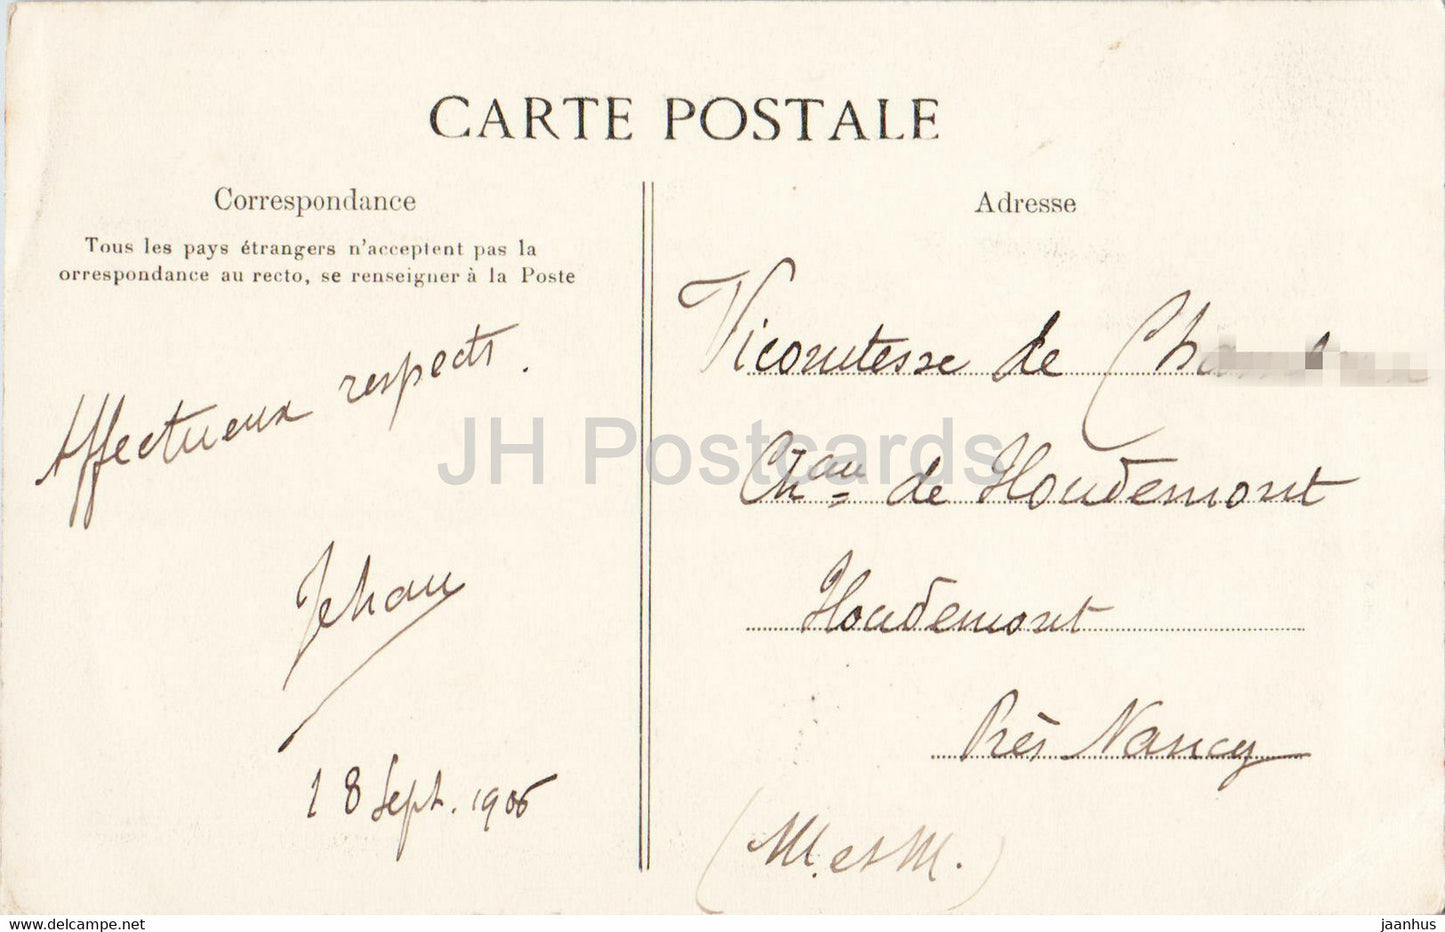 CARTE POSTALE
Correspondance
Tous les pays étrangers n'acceptent pas la
orrespondance au recto, se renseigner à la Poste
Affectueux respects.
Jehan
18 Sept. 1906
Adresse
Vicomtesse de
Chau de Houdemont
Houdemont
Près Nancy
(M. et M.)
JH Postcards
https://www.delcampe.net
jaanhus